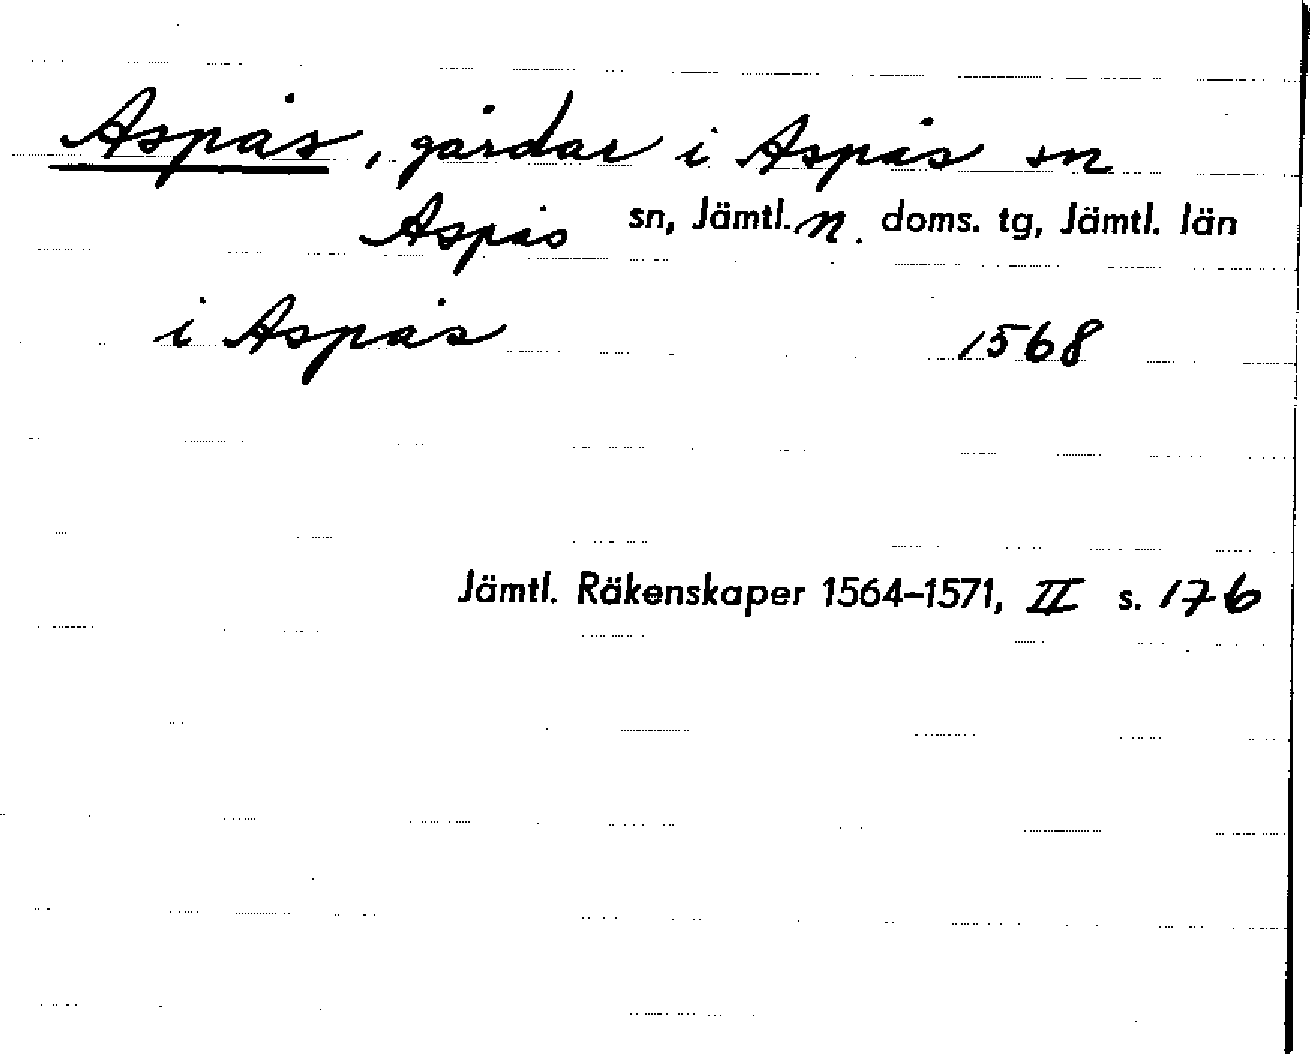 Aspås, gårdar i Aspås sn
Aspås sn, Jämtl. n. doms. tg, Jämtl. län
i Aspås 1568
Jämtl. Räkenskaper 1564–1571, II s. 176